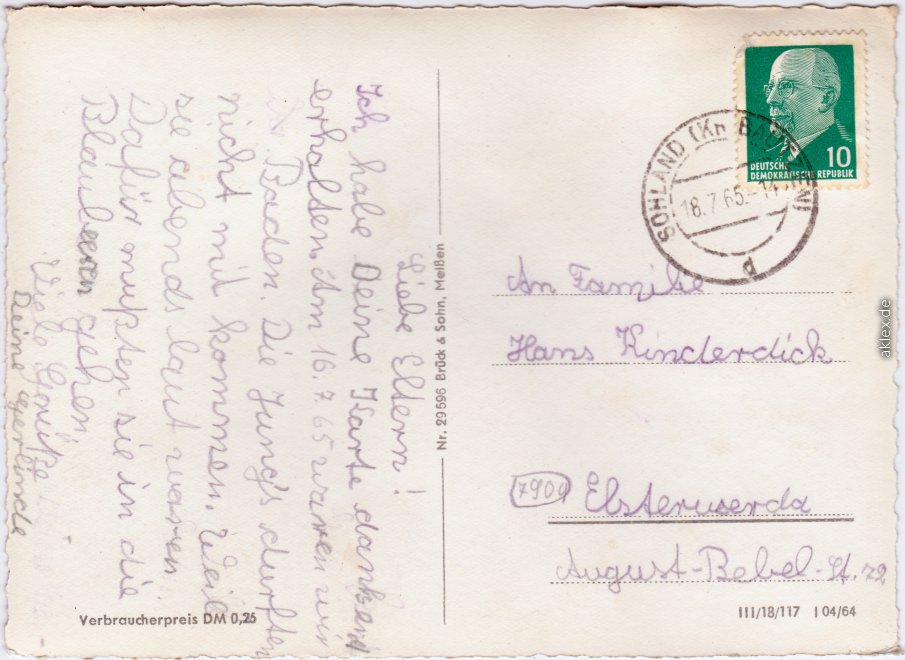 Liebe Eltern!
Ich habe Deine Karte dankend
erhalten. Am 16.7.65 waren wir
Baden. Die Jung's durften
nicht mit kommen. Weil
sie abends laut waren.
Dafür mußten sie in die
Blaubeeren gehen
Viele Grüße
Deine Gerlinde
Nr. 29596 Brück & Sohn, Meißen
Verbraucherpreis DM 0,25
10
DEUTSCHE
DEMOKRATISCHE REPUBLIK
SOHLAND (Kr BAUTZEN)
18.7.65.-14
p
An Familie
Hans Kinderdick
7900 Elsterwerda
August-Bebel-St. 72
III/18/117 I 04/64
aklex.de